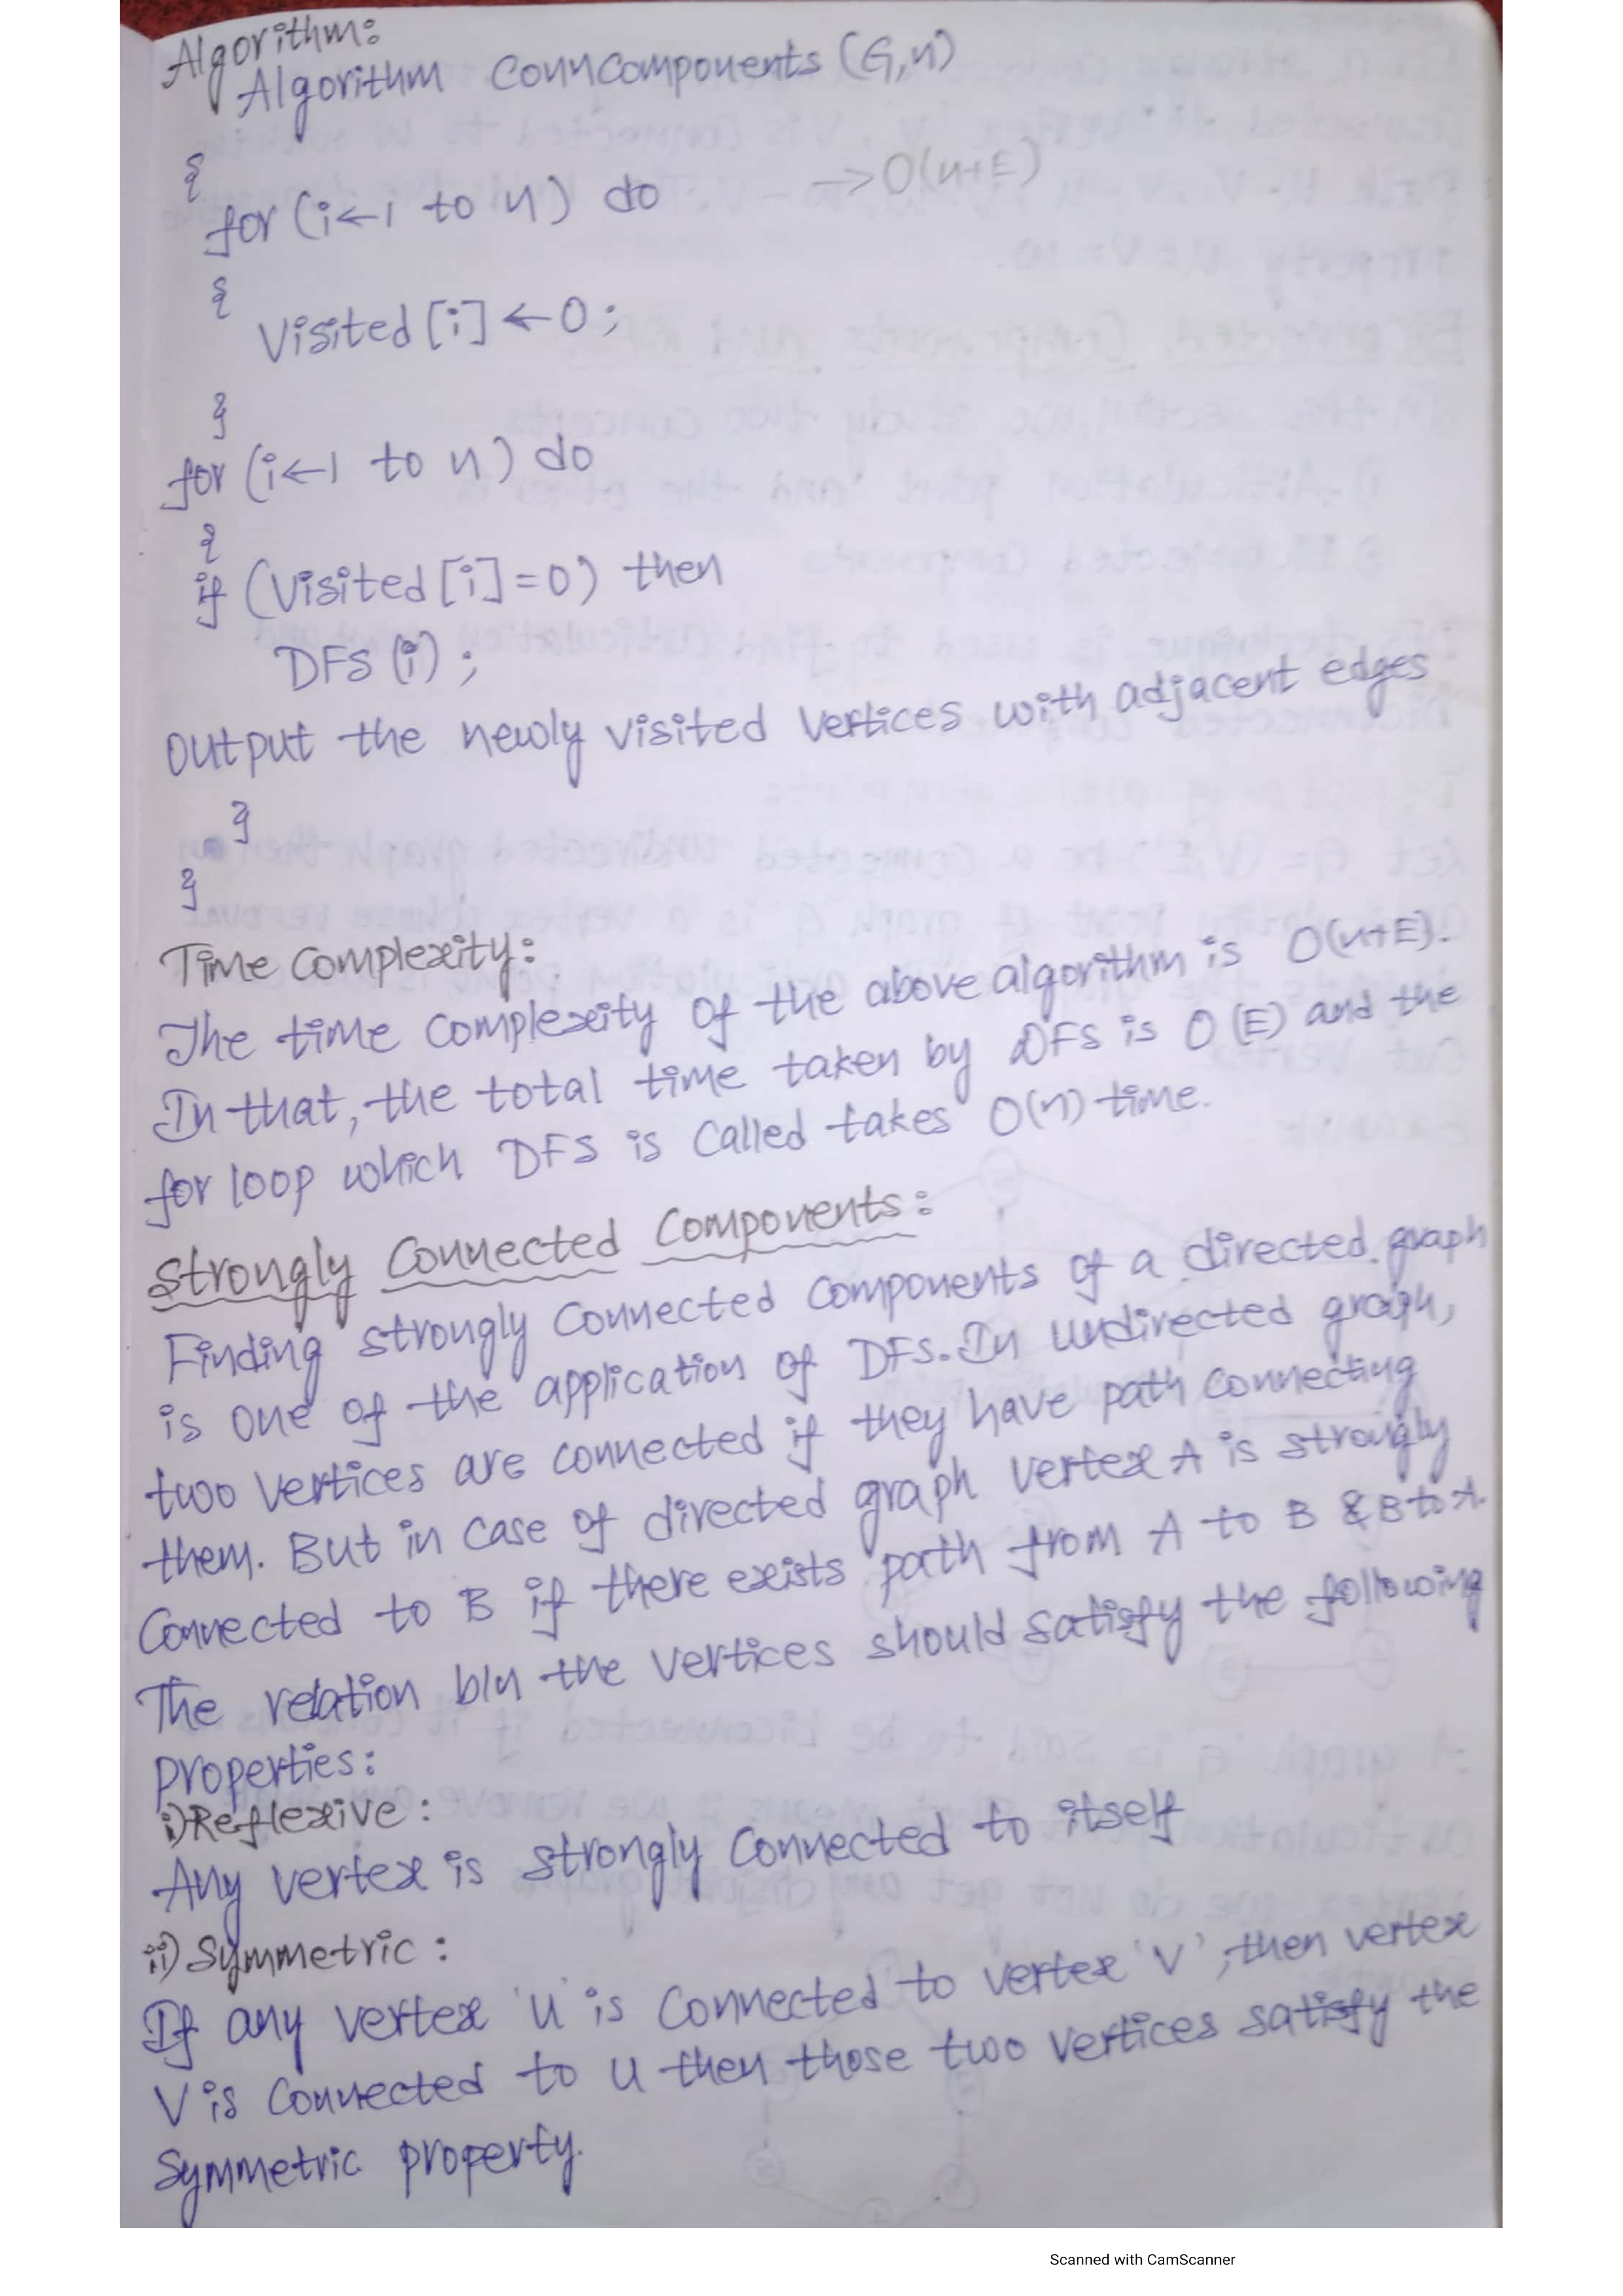 Algorithm:
Algorithm ConnComponents (G,n)
{
for (i←1 to n) do →O(n+E)
{
Visited [i] ←0 ;
}
for (i←1 to n) do
{
if (Visited [i] = 0) then
DFS (i) ;
output the newly visited vertices with adjacent edges
}
}
Time Complexity:
The time complexity of the above algorithm is O(n+E).
In that, the total time taken by DFS is O(E) and the
for loop which DFS is called takes O(n) time.
Strongly Connected Components:
Finding strongly connected components of a directed graph
is one of the application of DFS. In undirected graph,
two vertices are connected if they have path connecting
them. But in case of directed graph vertex A is strongly
Connected to B if there exists path from A to B & B to A.
The relation b/n the vertices should satisfy the following
properties:
i) Reflexive:
Any vertex is strongly connected to itself
ii) Symmetric:
If any vertex 'u' is connected to vertex 'v', then vertex
V is connected to u then those two vertices satisfy the
Symmetric property.
Scanned with CamScanner